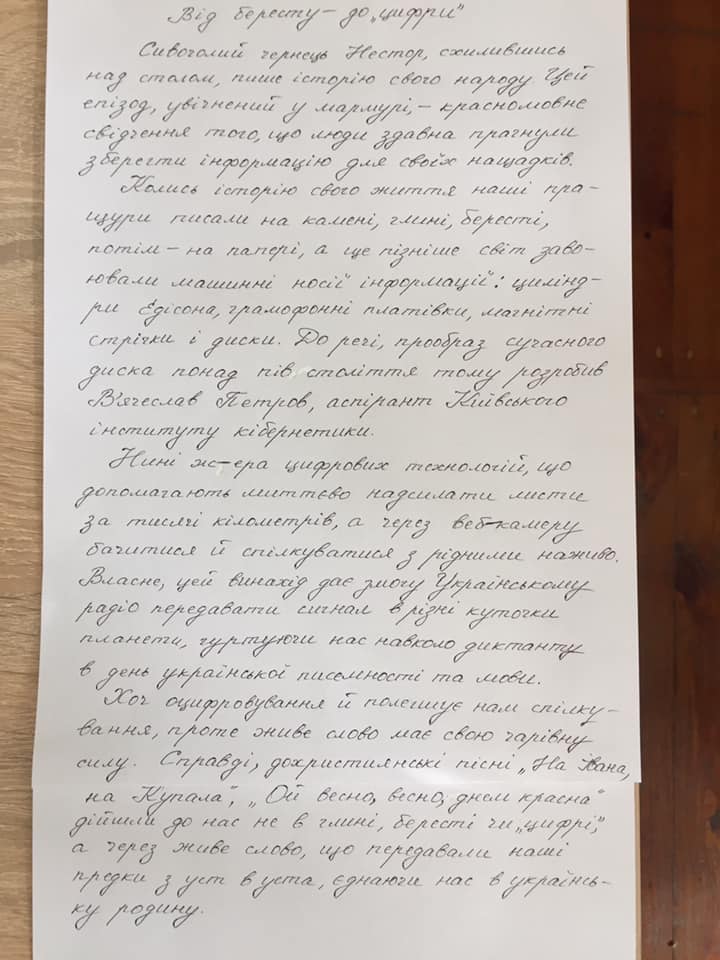 Від бересту – до „цифри"
Сивочолий чернець Нестор, схилившись
над столом, пише історію свого народу. Цей
епізод, увічнений у мармурі, – красномовне
свідчення того, що люди здавна прагнули
зберегти інформацію для своїх нащадків.
Колись історію свого життя наші пра-
щури писали на камені, глині, бересті,
потім – на папері, а ще пізніше світ заво-
ювали машинні носії інформації: цилінд-
ри Едісона, грамофонні платівки, магнітні
стрічки і диски. До речі, прообраз сучасного
диска понад пів століття тому розробив
В'ячеслав Петров, аспірант Київського
інституту кібернетики.
Нині ж – ера цифрових технологій, що
допомагають миттєво надсилати листи
за тисячі кілометрів, а через веб-камеру
бачитися й спілкуватися з рідними наживо.
Власне, цей винахід дає змогу Українському
радіо передавати сигнал в різні куточки
планети, гуртуючи нас навколо диктанту
в день української писемності та мови.
Хоч оцифровування й полегшує нам спілку-
вання, проте живе слово має свою чарівну
силу. Справді, дохристиянські пісні „На Івана,
на Купала", „Ой весно, весно, днем красна"
дійшли до нас не в глині, бересті чи „цифрі",
а через живе слово, що передавали наші
предки з уст в уста, єднаючи нас в українсь-
ку родину.